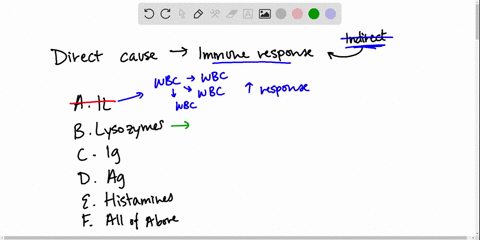 Indirect
Direct cause → Immune response
WBC → WBC
WBC ↑ response
WBC
A. IL
B. Lysozymes →
C. Ig
D. Ag
E. Histamines
F. All of Above